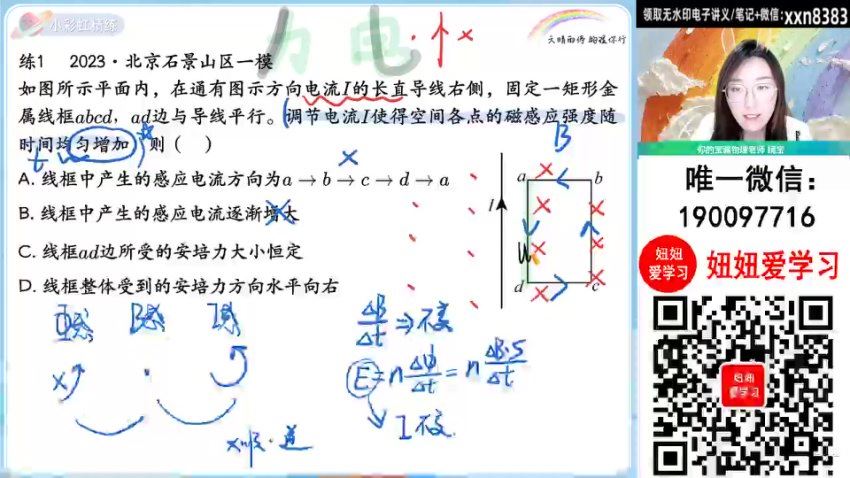 小彩虹精练
力 电
天晴雨停 甜橙保行
领取无水印电子讲义/笔记+微信:xxn8383
练1 2023·北京石景山区一模
如图所示平面内，在通有图示方向电流I的长直导线右侧，固定一矩形金
属线框abcd，ad边与导线平行。调节电流I使得空间各点的磁感应强度随
时间均匀增加，则（ ）
A. 线框中产生的感应电流方向为a→b→c→d→a
B. 线框中产生的感应电流逐渐增大
C. 线框ad边所受的安培力大小恒定
D. 线框整体受到的安培力方向水平向右
B
a b
I
d c
ΔB/Δt ⇒ 不变
E = n ΔΦ/Δt = n ΔB·S/Δt
I 不变
唯一微信：
190097716
妞妞
爱学习
妞妞爱学习
妞妞
爱学习